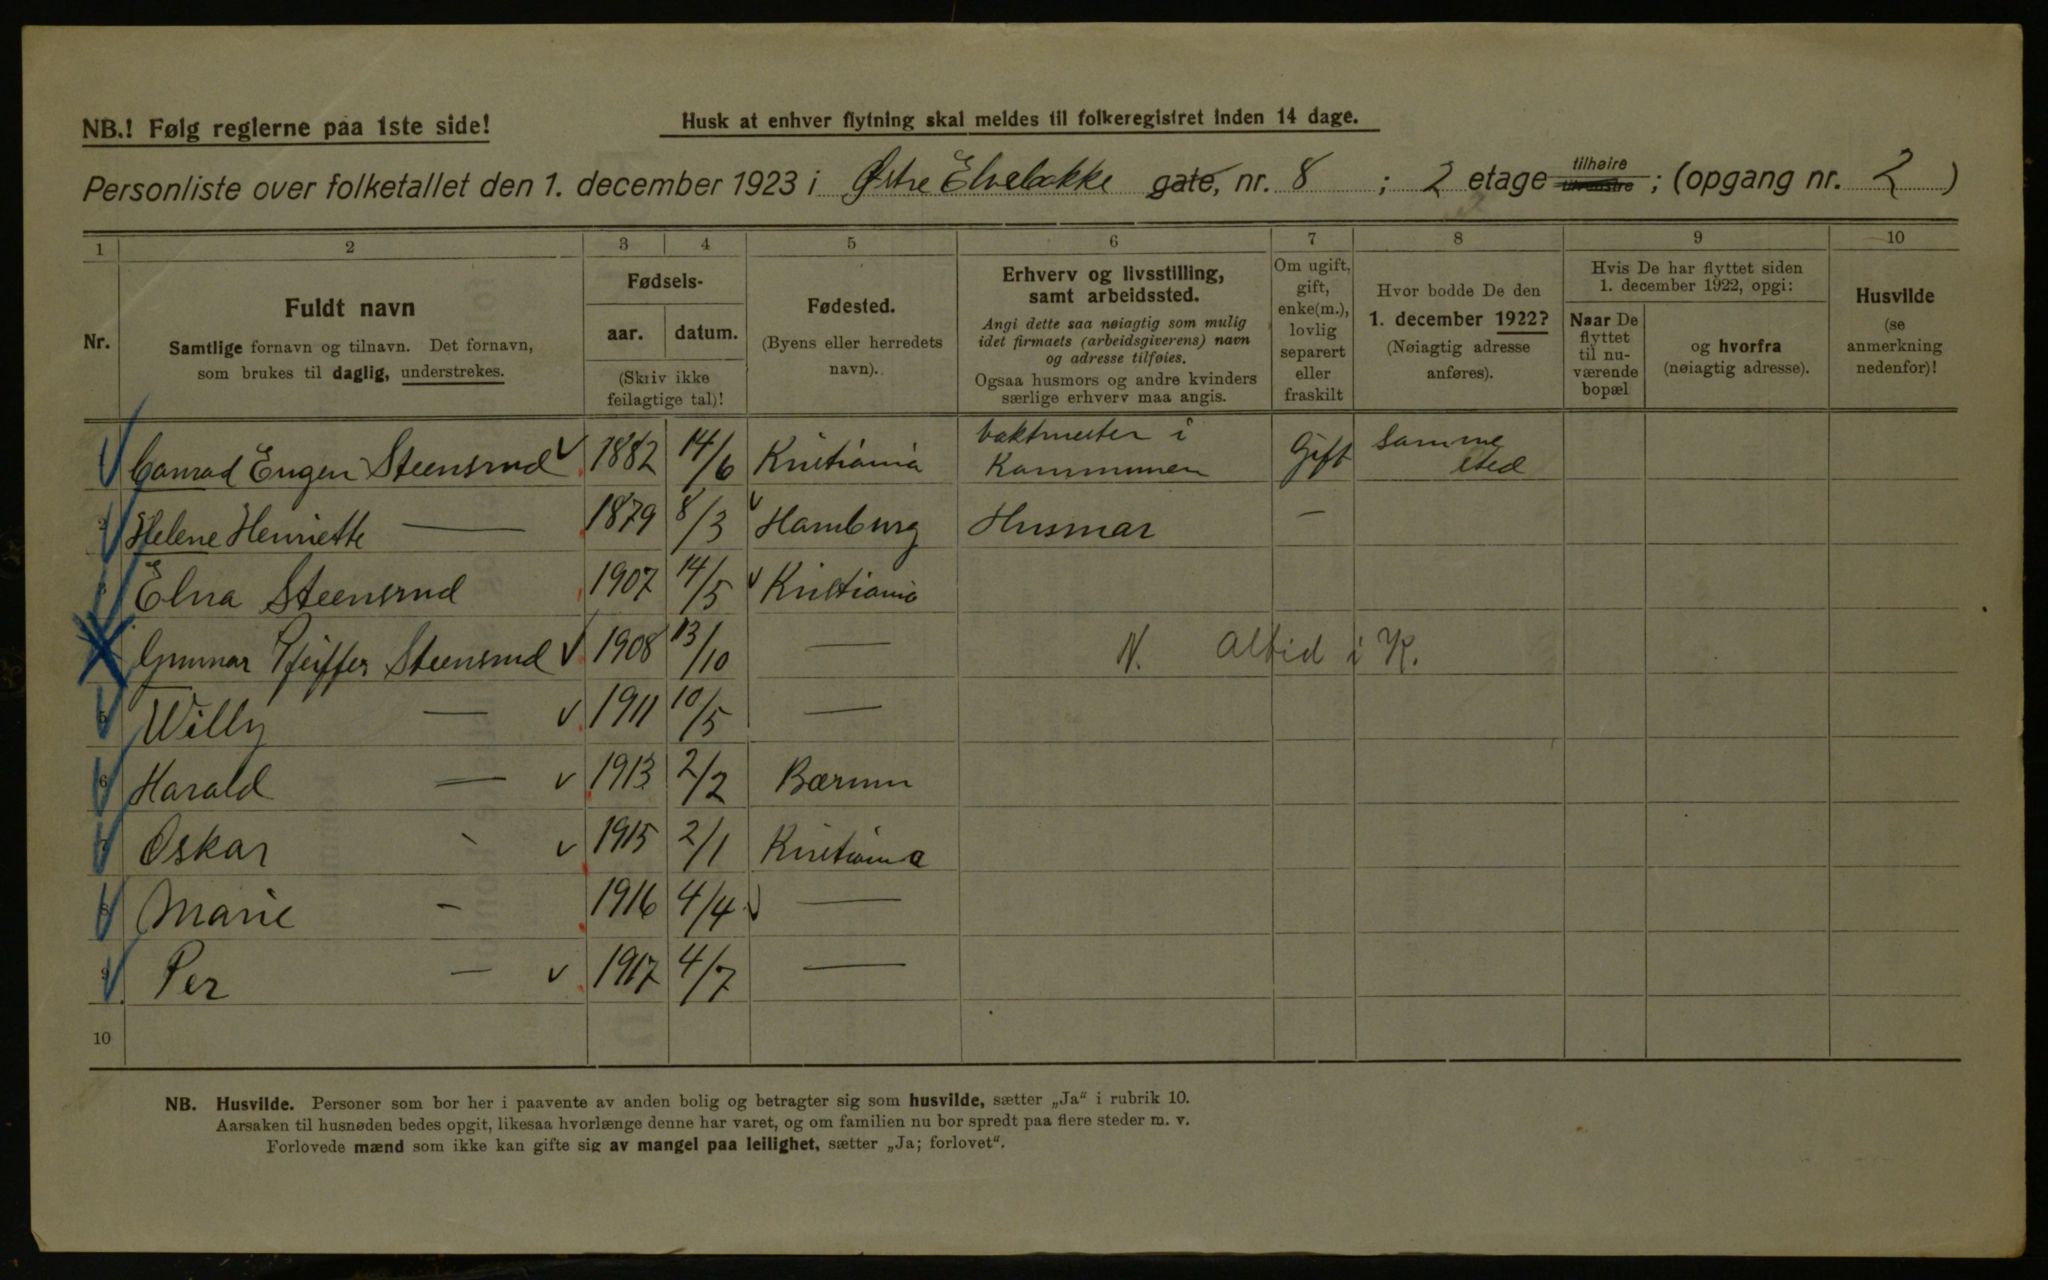 NB.! Følg reglerne paa 1ste side!
Husk at enhver flytning skal meldes til folkeregistret inden 14 dage.
Personliste over folketallet den 1. december 1923 i Østre Elvebakke gate, nr. 8 ; 2 etage tilhøire tilvenstre ; (opgang nr. 2 )
1 2 3 4 5 6 7 8 9 10
Nr.
Fuldt navn
Samtlige fornavn og tilnavn. Det fornavn,
som brukes til daglig, understrekes.
Fødsels-
aar. datum.
(Skriv ikke
feilagtige tal)!
Fødested.
(Byens eller herredets
navn).
Erhverv og livsstilling,
samt arbeidssted.
Angi dette saa nøiagtig som mulig
idet firmaets (arbeidsgiverens) navn
og adresse tilføies.
Ogsaa husmors og andre kvinders
særlige erhverv maa angis.
Om ugift,
gift,
enke(m.),
lovlig
separert
eller
fraskilt
Hvor bodde De den
1. december 1922?
(Nøiagtig adresse
anføres).
Hvis De har flyttet siden
1. december 1922, opgi:
Naar De
flyttet
til nu-
værende
bopæl
og hvorfra
(nøiagtig adresse).
Husvilde
(se
anmerkning
nedenfor)!
Conrad Eugen Steensrud 1882 14/6 Kristiania Vaktmester i Kommunen Gift Samme sted
2 Helene Henriette — 1879 8/3 Hamburg Husmor —
Elna Steensrud 1907 14/5 Kristiania
Gunnar Pfeiffer Steensrud 1908 13/10 — N. Altid i K.
5 Willy — 1911 10/5 —
6 Harald — 1913 2/2 Bærum
7 Oskar - 1915 2/1 Kristiania
8 Marie - 1916 4/4 —
9 Per — 1917 4/7 —
10
NB. Husvilde. Personer som bor her i paavente av anden bolig og betragter sig som husvilde, sætter „Ja“ i rubrik 10.
Aarsaken til husnøden bedes opgit, likesaa hvorlænge denne har varet, og om familien nu bor spredt paa flere steder m. v.
Forlovede mænd som ikke kan gifte sig av mangel paa leilighet, sætter „Ja; forlovet“.